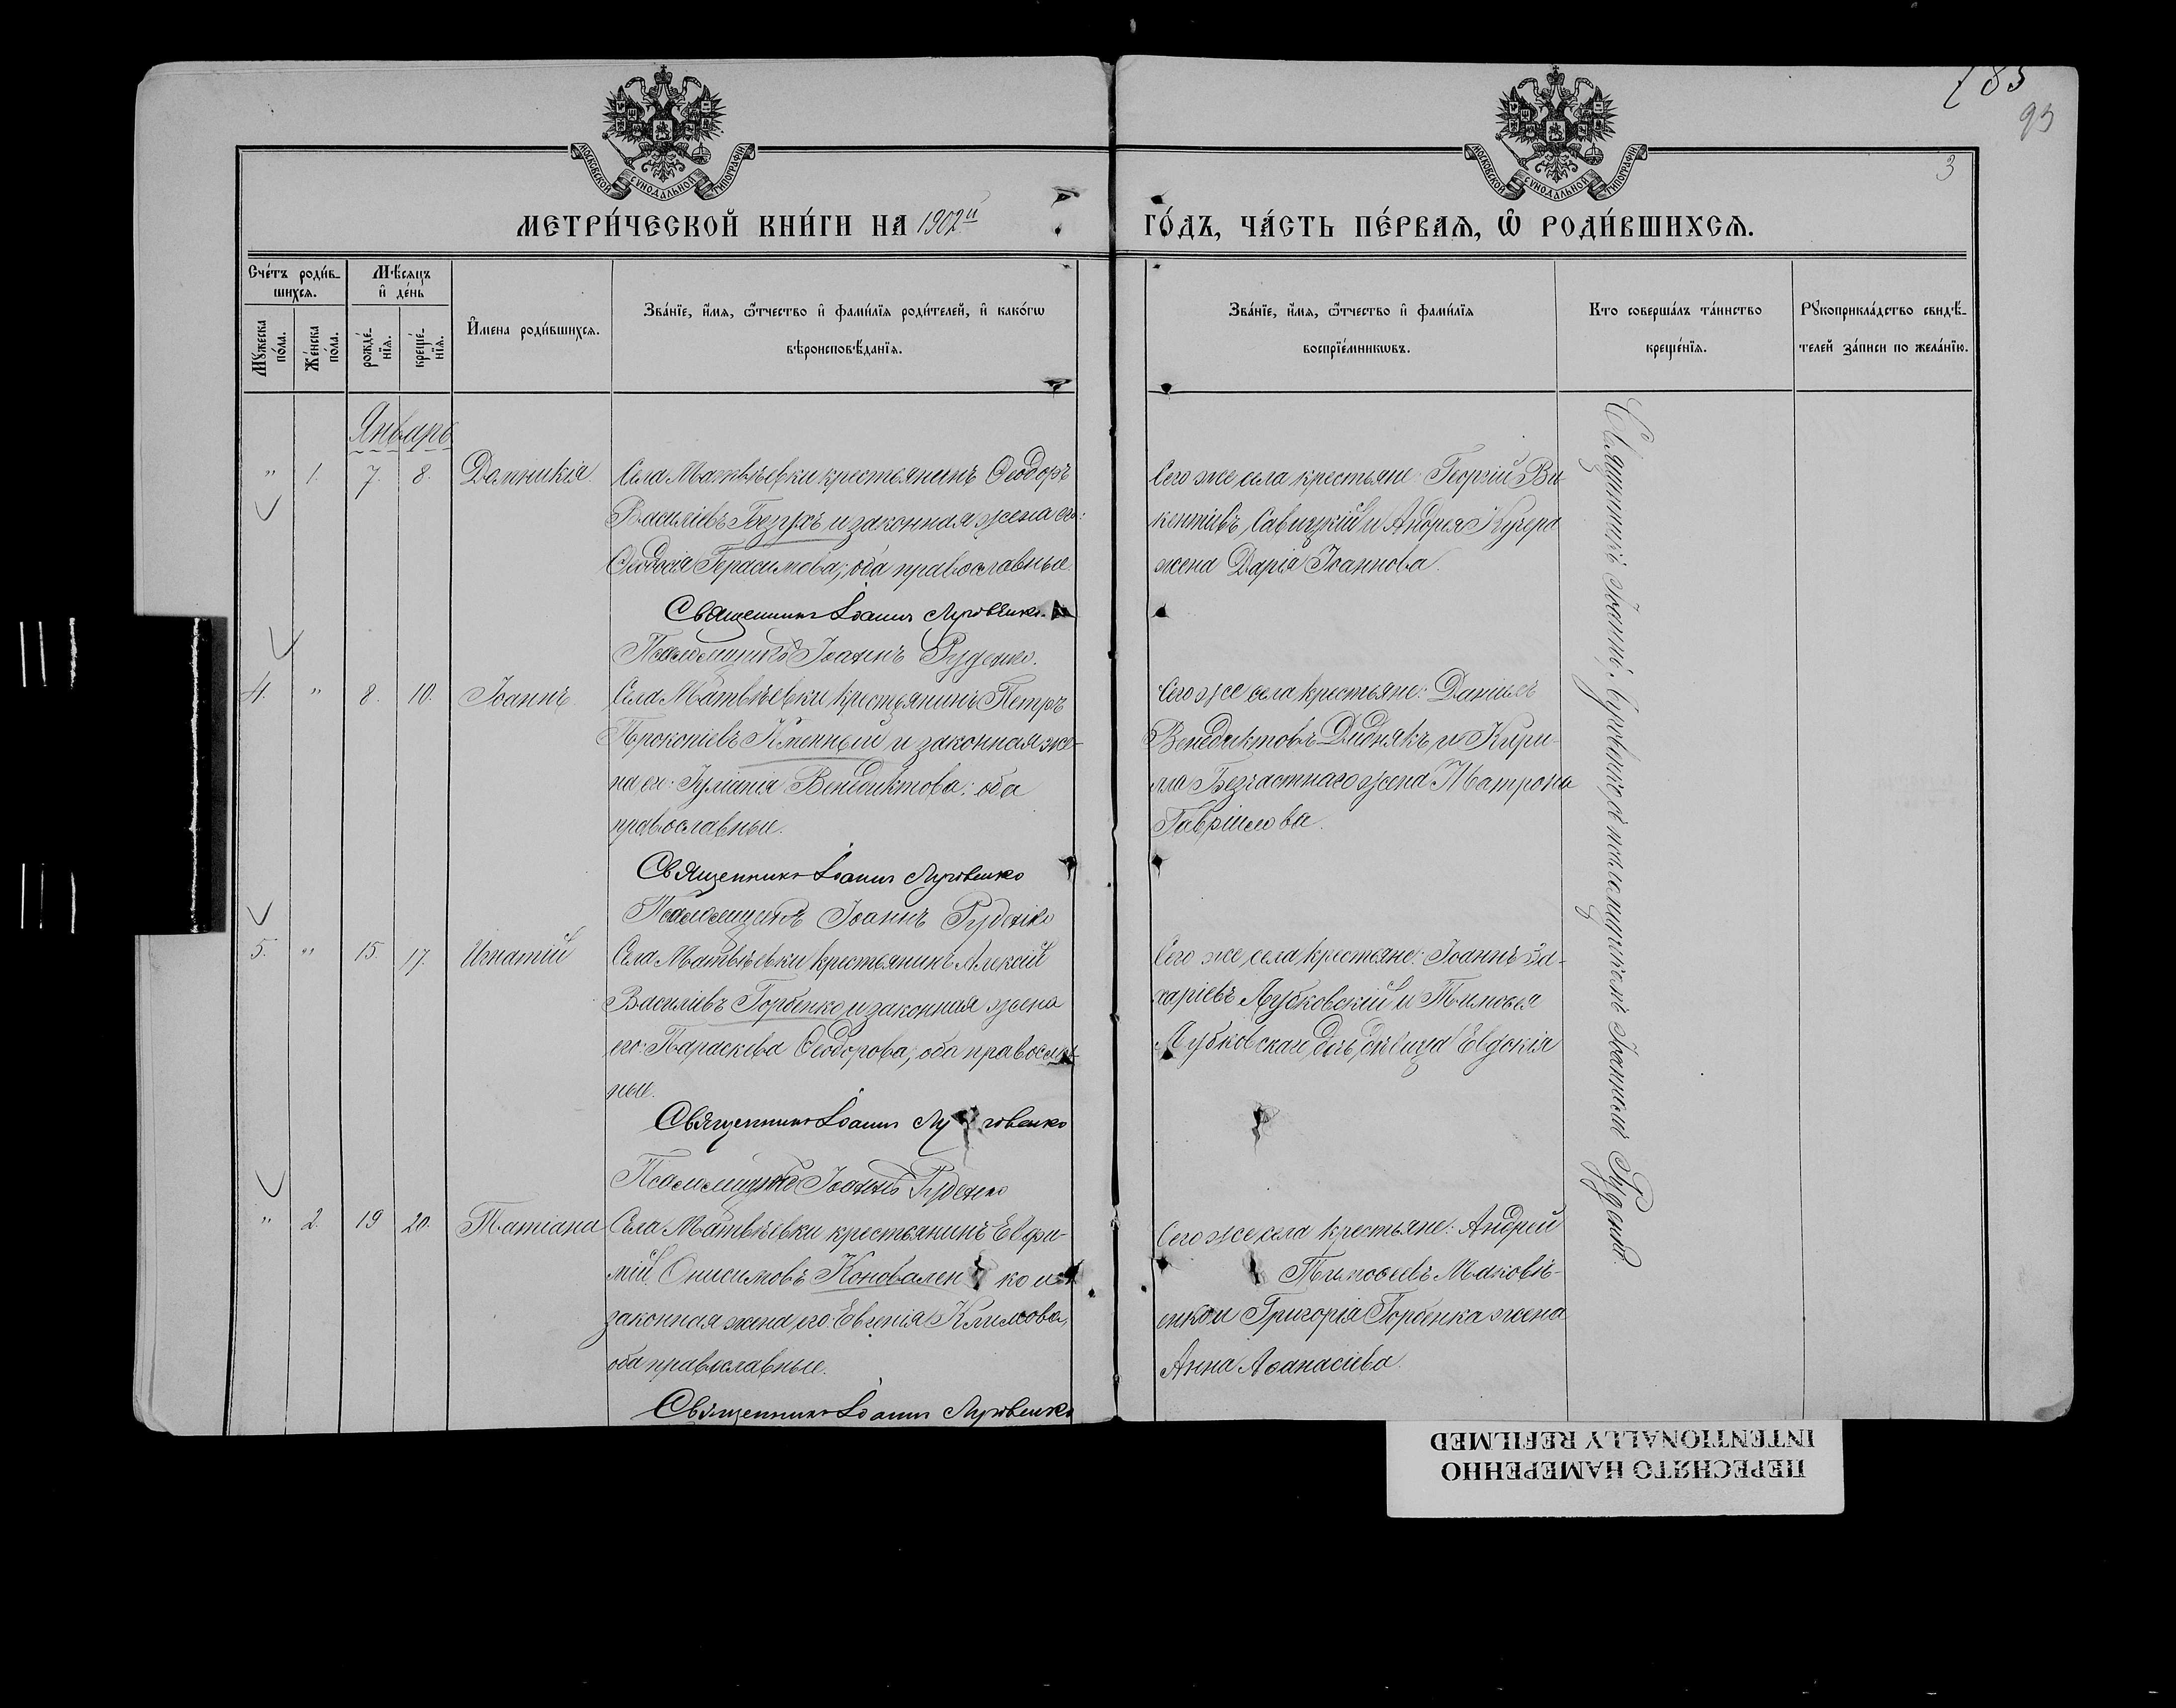 785
93
3
МОСКОВСКОЙ СѴНОДАЛЬНОЙ ТИПОГРАФІИ
МОСКОВСКОЙ СѴНОДАЛЬНОЙ ТИПОГРАФІИ
МЕТРИ́ЧЕСКОЙ КНИ́ГИ НА 1902й ГО́ДЪ, ЧА́СТЬ ПЕ́РВАѦ, Ѽ РОДИ́ВШИХСѦ.
Сче́тъ роди́в-
шихсѧ.
Мѣ́сяцъ
и҆ де́нь
Мꙋ́жеска по́ла.
Же́нска по́ла.
рожде́-
нїѧ.
креще́-
нїѧ.
И҆мена роди́вшихсѧ.
Зва́нїе, и҆́мѧ, ѻ҆́тчество и҆ фами́лїѧ роди́телей, и҆ како́гѡ
вѣроисповѣ́данїѧ.
Зва́нїе, и҆́мѧ, ѻ҆́тчество и҆ фами́лїѧ
воспрїе́мникѡвъ.
Кто соверша́лъ та́инство
креще́нїѧ.
Рꙋкоприкла́дство свидѣ́-
телей за́писи по жела́нїю.
Январь
" 1. 7. 8. Домникія
Села Матвѣевки крестьянинъ Ѳеодоръ
Василіевъ Безухъ и законная жена его:
Ѳеодосія Герасимова; оба православные.
Священникъ Іоаннъ Луговенко.
Псаломщикъ Іоаннъ Руденко.
Сего же села крестьяне: Георгій Ви-
кентіевъ Савицкій и Андрея Кучера
жена Дарія Іоаннова.
4. " 8. 10. Іоаннъ
Села Матвѣевки крестьянинъ Петръ
Прокопіевъ Кменный и законная же-
на ег: Іуліанія Венедиктова; оба
православные.
Священникъ Іоаннъ Луговенко
Псаломщикъ Іоаннъ Руденко
Сего же села крестьяне: Даніилъ
Венедиктовъ Диднякъ и Кири-
лла Безчастнаго жена Матрона
Гавріилова.
5. " 15. 17. Игнатій
Села Матвѣевки крестьянинъ Алексій
Василіевъ Горбенко и законная жена
его: Параскева Ѳеодорова; оба православ-
ные.
Священникъ Іоаннъ Луговенко
Псаломщикъ Іоаннъ Руденко
Сего же села крестьяне: Іоаннъ За-
харіевъ Лубковскій и Тимоѳея
Лубковскаго дочь, дѣвица Евдокія
" 2. 19 20. Татіана
Села Матвѣевки крестьянинъ Евфи-
мій Онисимовъ Коноваленко и
законная жена его: Евгенія Климова,
оба православные.
Священникъ Іоаннъ Луговенко
Сего же села крестьяне: Андрей
Тимоѳеевъ Маковѣ-
енко и Григорія Горбенка жена
Анна Аѳанасіева.
Священникъ Іоаннъ Луговенко съ псаломщикомъ Іоанномъ Руденко.
ПЕРЕСНЯТО НАМЕРЕННО
INTENTIONALLY REFILMED